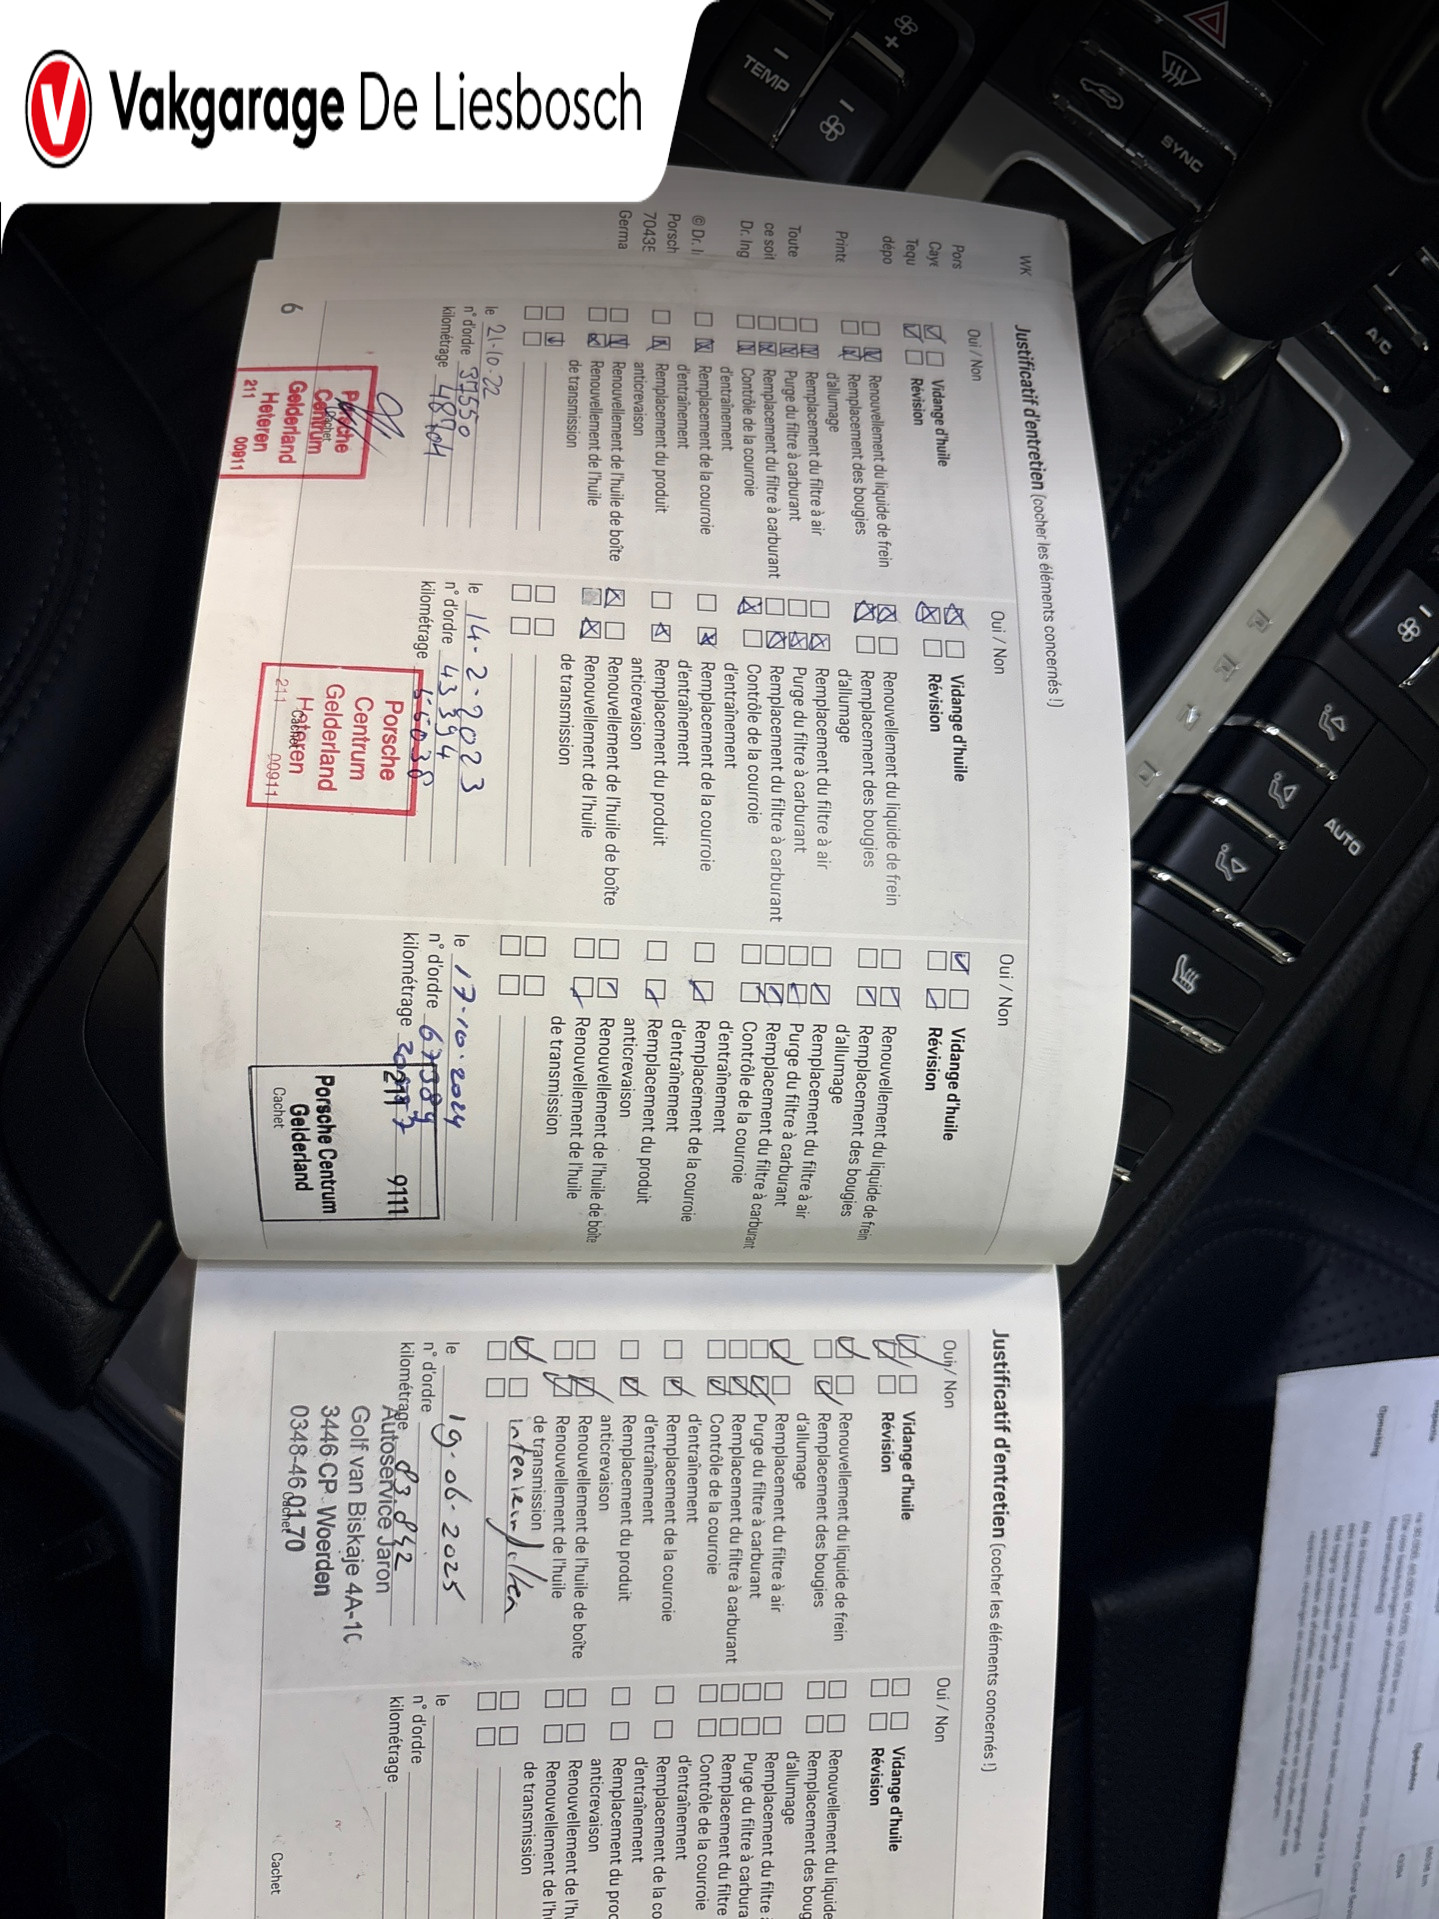 Vakgarage De Liesbosch
TEMP
SYNC
A/C
AUTO
WK
Pors
Caye
Tequ
dépo
Printe
Toute
ce soit
Dr. Ing
© Dr. I
Porsch
7043E
Germa
Justificatif d'entretien (cocher les éléments concernés !)
Oui / Non
Vidange d'huile
Révision
Renouvellement du liquide de frein
Remplacement des bougies
d'allumage
Remplacement du filtre à air
Purge du filtre à carburant
Remplacement du filtre à carburant
Contrôle de la courroie
d'entraînement
Remplacement de la courroie
d'entraînement
Remplacement du produit
anticrevaison
Renouvellement de l'huile de boîte
Renouvellement de l'huile
de transmission
le 21-10-22
n° d'ordre 37550
kilométrage
Porsche
Centrum
Gelderland
Heteren
211 00911
Cachet
6
Oui / Non
Vidange d'huile
Révision
Renouvellement du liquide de frein
Remplacement des bougies
d'allumage
Remplacement du filtre à air
Purge du filtre à carburant
Remplacement du filtre à carburant
Contrôle de la courroie
d'entraînement
Remplacement de la courroie
d'entraînement
Remplacement du produit
anticrevaison
Renouvellement de l'huile de boîte
Renouvellement de l'huile
de transmission
le 14-2-2023
n° d'ordre 43394
kilométrage
Porsche
Centrum
Gelderland
Heteren
211 00911
Cachet
Oui / Non
Vidange d'huile
Révision
Renouvellement du liquide de frein
Remplacement des bougies
d'allumage
Remplacement du filtre à air
Purge du filtre à carburant
Remplacement du filtre à carburant
Contrôle de la courroie
d'entraînement
Remplacement de la courroie
d'entraînement
Remplacement du produit
anticrevaison
Renouvellement de l'huile de boîte
Renouvellement de l'huile
de transmission
le 17-10-2024
n° d'ordre
kilométrage
211 9111
Porsche Centrum
Gelderland
Cachet
Justificatif d'entretien (cocher les éléments concernés !)
Oui / Non
Vidange d'huile
Révision
Renouvellement du liquide de frein
Remplacement des bougies
d'allumage
Remplacement du filtre à air
Purge du filtre à carburant
Remplacement du filtre à carburant
Contrôle de la courroie
d'entraînement
Remplacement de la courroie
d'entraînement
Remplacement du produit
anticrevaison
Renouvellement de l'huile de boîte
Renouvellement de l'huile
de transmission
le 19-06-2025
n° d'ordre
kilométrage 83.842
Autoservice Jaron
Golf van Biskaje 4A-1C
3446 CP Woerden
0348-46 01 70
Cachet
Oui / Non
Vidange d'huile
Révision
Renouvellement du liquide
Remplacement des boug
d'allumage
Remplacement du filtre
Purge du filtre à carbura
Remplacement du filtre
Contrôle de la courroie
d'entraînement
Remplacement de la co
d'entraînement
Remplacement du prod
anticrevaison
Renouvellement de l'hu
Renouvellement de l'h
de transmission
le
n° d'ordre
kilométrage
Cachet
Opmerking